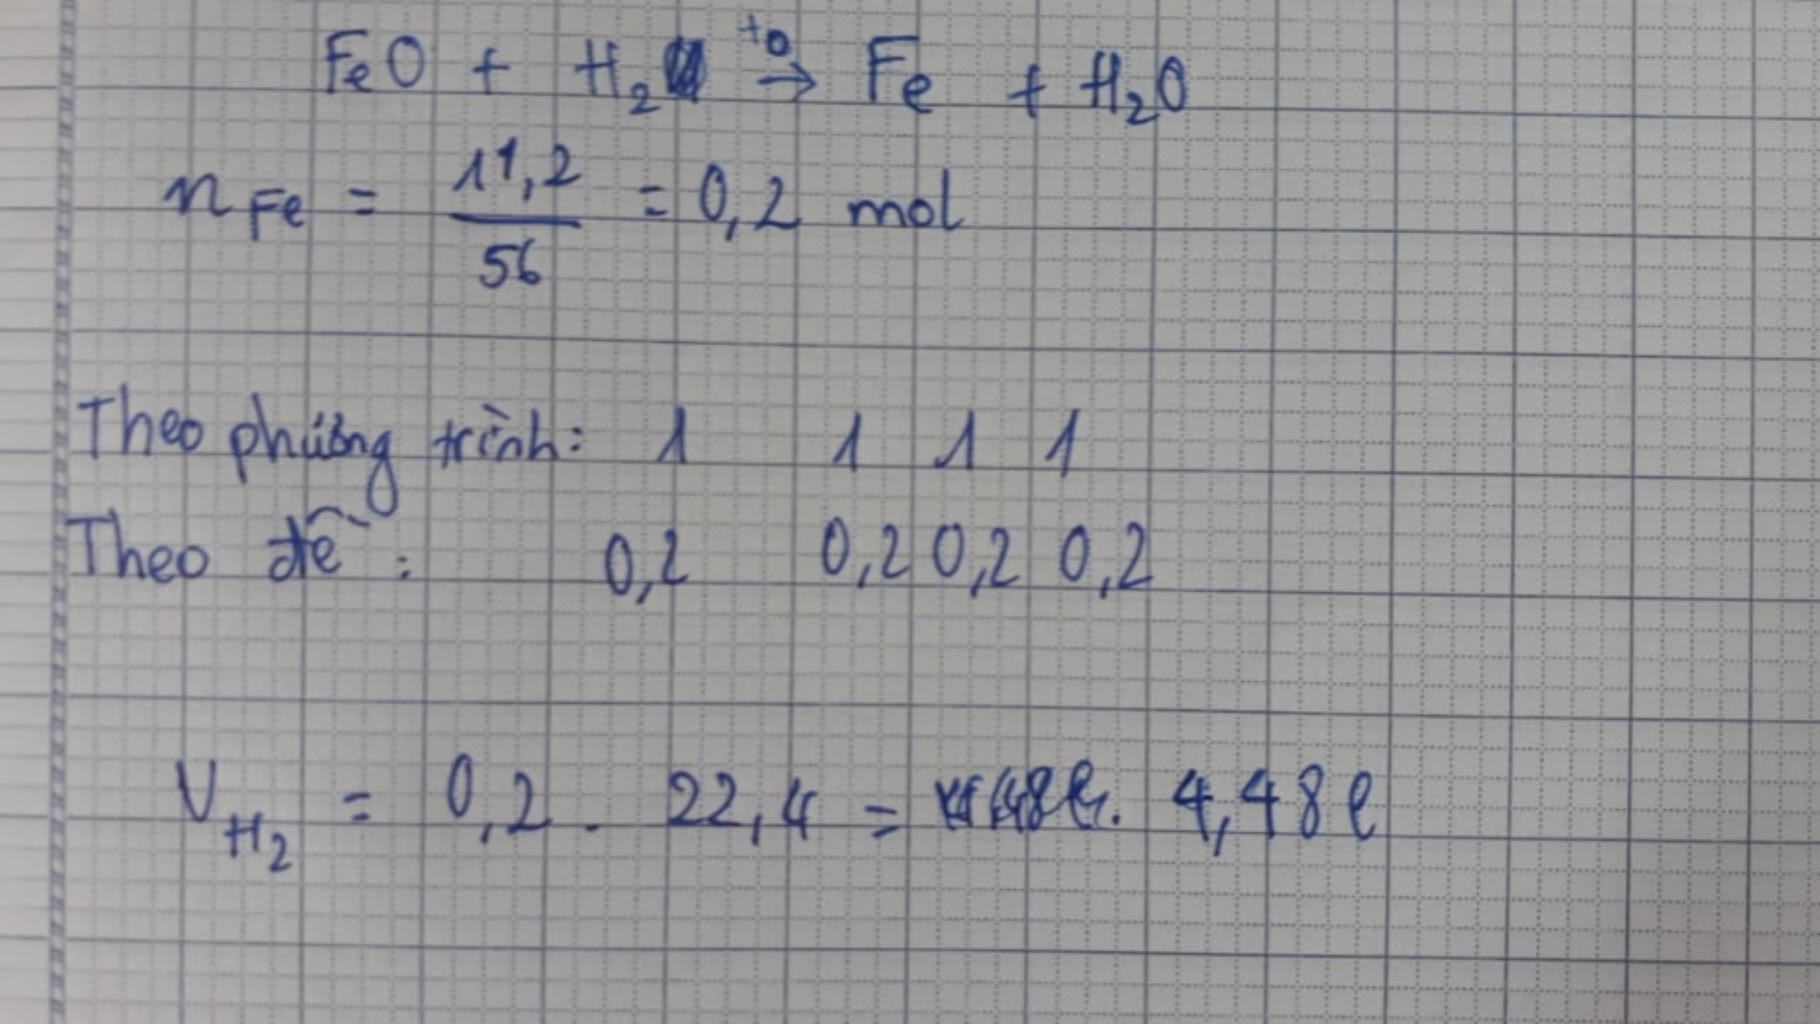 FeO + H₂ t⁰→ Fe + H₂O
n Fe = 11,2 / 56 = 0,2 mol
Theo phương trình: 1 1 1 1
Theo đề : 0,2 0,2 0,2 0,2
V H₂ = 0,2 . 22,4 = 4,48 l